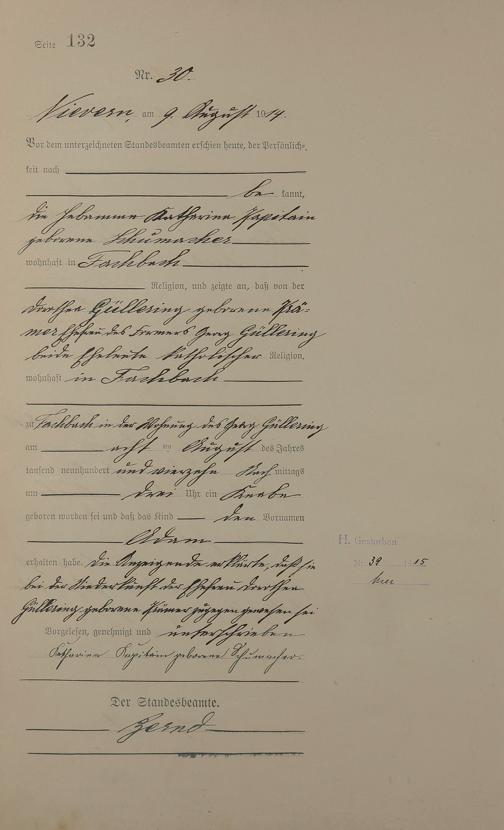 Seite 132
Nr. 30.
Nievern, am 9. August 1914.
Vor dem unterzeichneten Standesbeamten erschien heute, der Persönlich-
keit nach
be kannt,
die Hebamme Katharina Kapitain
geborene Schumacher
wohnhaft in Fachbach
Religion, und zeigte an, daß von der
Dorothea Güllering geborene Krä-
mer Ehefrau des Formers Georg Güllering
beide Eheleute katholischer Religion,
wohnhaft in Fachbach
zu Fachbach in der Wohnung des Georg Güllering
am acht ten August des Jahres
tausend neunhundert und vierzehn Nach mittags
um drei Uhr ein Knabe
geboren worden sei und daß das Kind den Vornamen
Adam
erhalten habe. Die Anzeigende erklärte, daß sie
bei der Niederkunft der Ehefrau Dorothea
Güllering geborene Krämer zugegen gewesen sei
Vorgelesen, genehmigt und unterschrieben
Katharina Kapitain geborene Schumacher.
Der Standesbeamte.
H. Gestorben
Nr 39 1915
hier